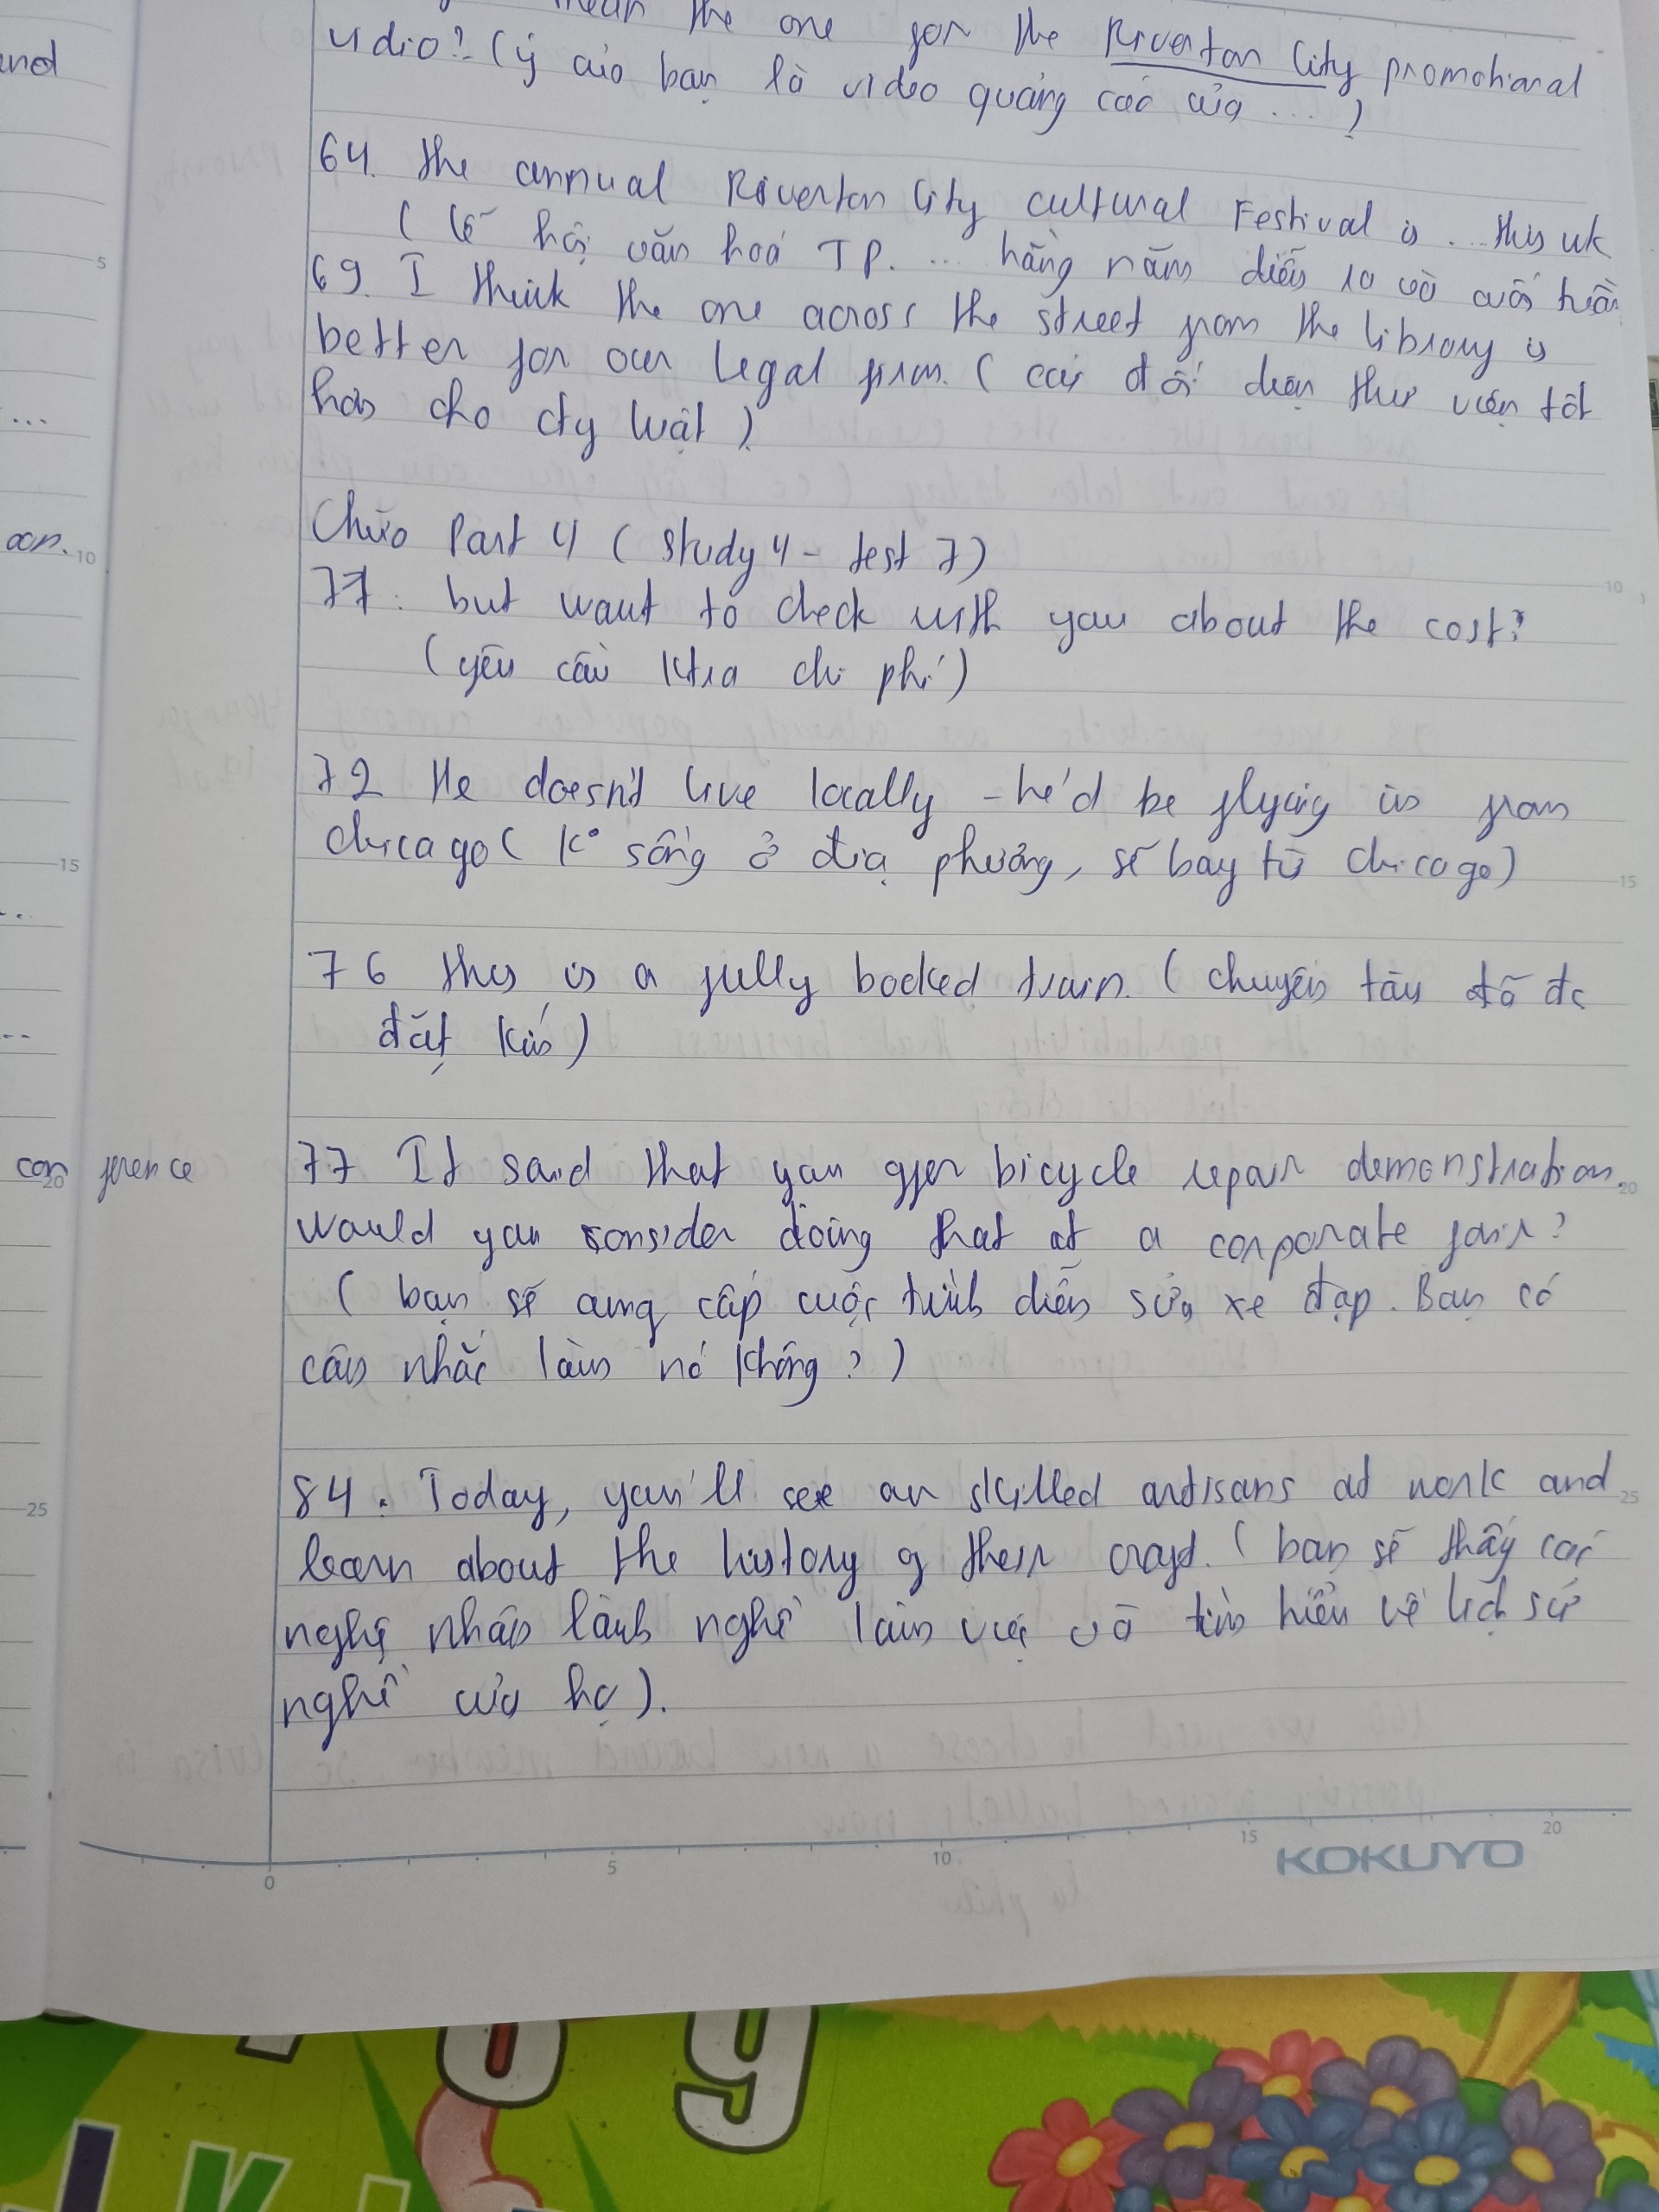 mean the one for the Riverton City promotional
vdio? (ý của bạn là video quảng cáo của ... )
64. the annual Riverton City cultural Festival is ... this wk
( lễ hội văn hoá TP. ... hằng năm diễn ra vào cuối tuần
69. I think the one across the street from the library is
better for our legal firm. ( cái đối diện thư viện tốt
hơn cho cty luật )
Chữa Part 4 ( Study 4 - test 7)
77. but want to check with you about the cost?
(yêu cầu ktra chi phí)
72 He doesn't live locally - he'd be flying in from
chicago ( k° sống ở địa phương, sẽ bay từ chicago)
76 this is a fully booked train. ( chuyến tàu đã đc
đặt kín )
77 It said that you offer bicycle repair demonstration.
would you consider doing that at a corporate fair?
( bạn sẽ cung cấp cuộc trình diễn sửa xe đạp. Bạn có
cân nhắc làm nó không? )
84. Today, you'll see an skilled artisans at work and
learn about the history of their craft. ( bạn sẽ thấy các
nghệ nhân lành nghề làm việc và tìm hiểu về lịch sử
nghề của họ ).
and
...
an.
conference
5
10
15
20
25
10
15
20
25
0
5
10
15
20
KOKUYO